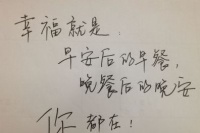 幸福就是,
早安后的早餐,
晚餐后的晚安
你都在!